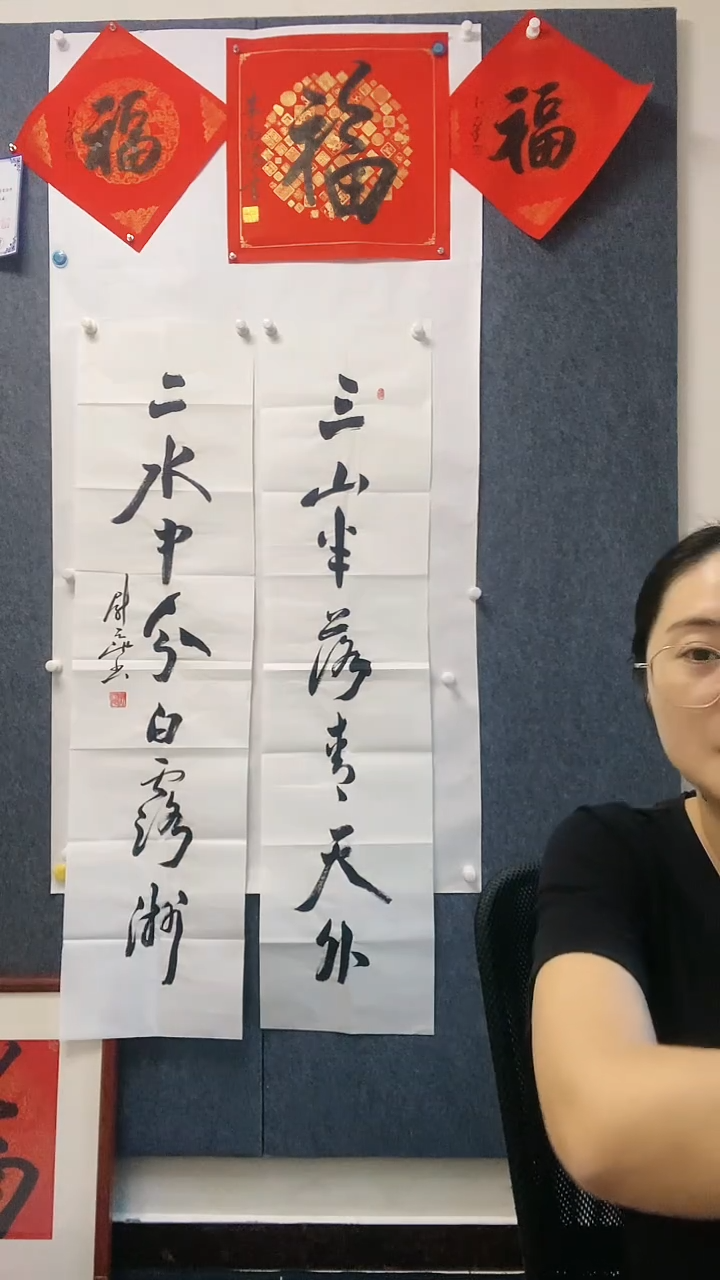 福
福
福
三山半落青天外
二水中分白露洲